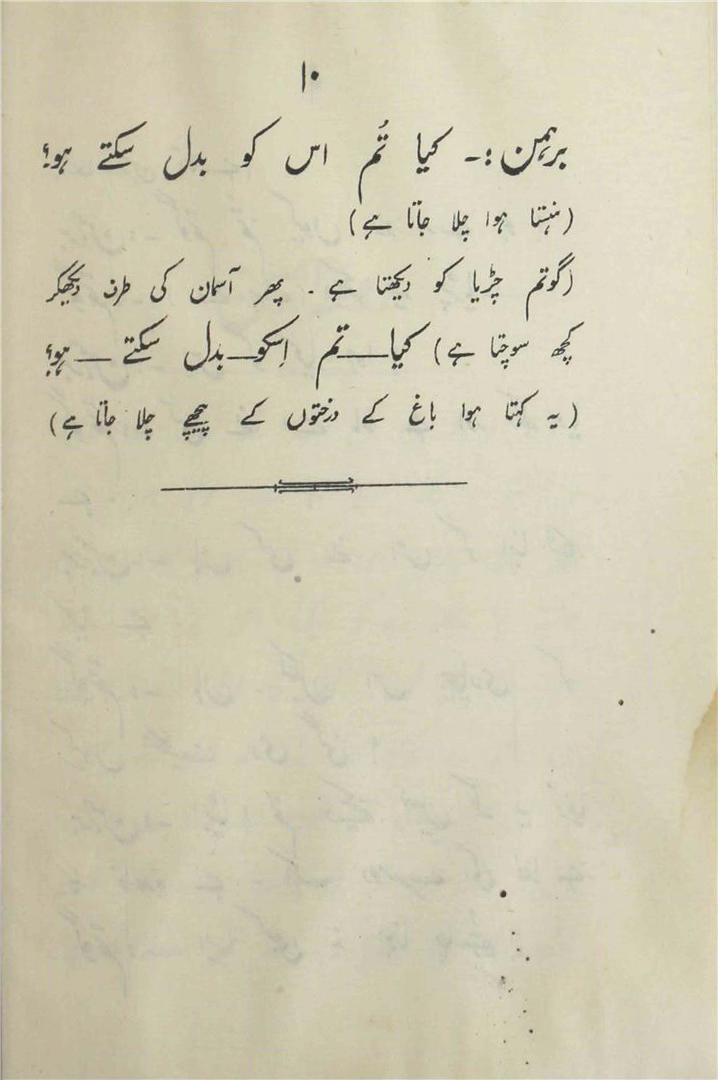 ۱۰
برہمن :۔ کیا تُم اس کو بدل سکتے ہو؟
(ہنستا ہوا چلا جاتا ہے)
(گوتم چڑیا کو دیکھتا ہے ۔ پھر آسمان کی طرف دیکھکر
کچھ سوچتا ہے) کیا — تم اِسکو — بدل سکتے — ہو؟
(یہ کہتا ہوا باغ کے درختوں کے پیچھے چلا جاتا ہے)